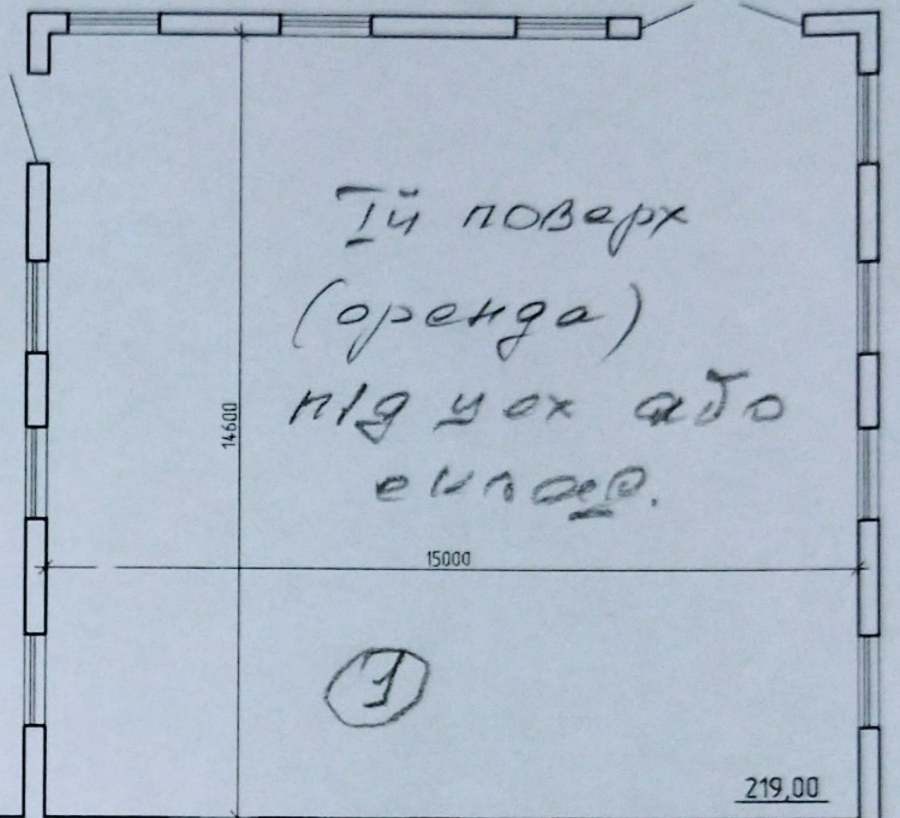 Iй поверх
(оренда)
під цех або
склад.
14600
15000
1
219,00